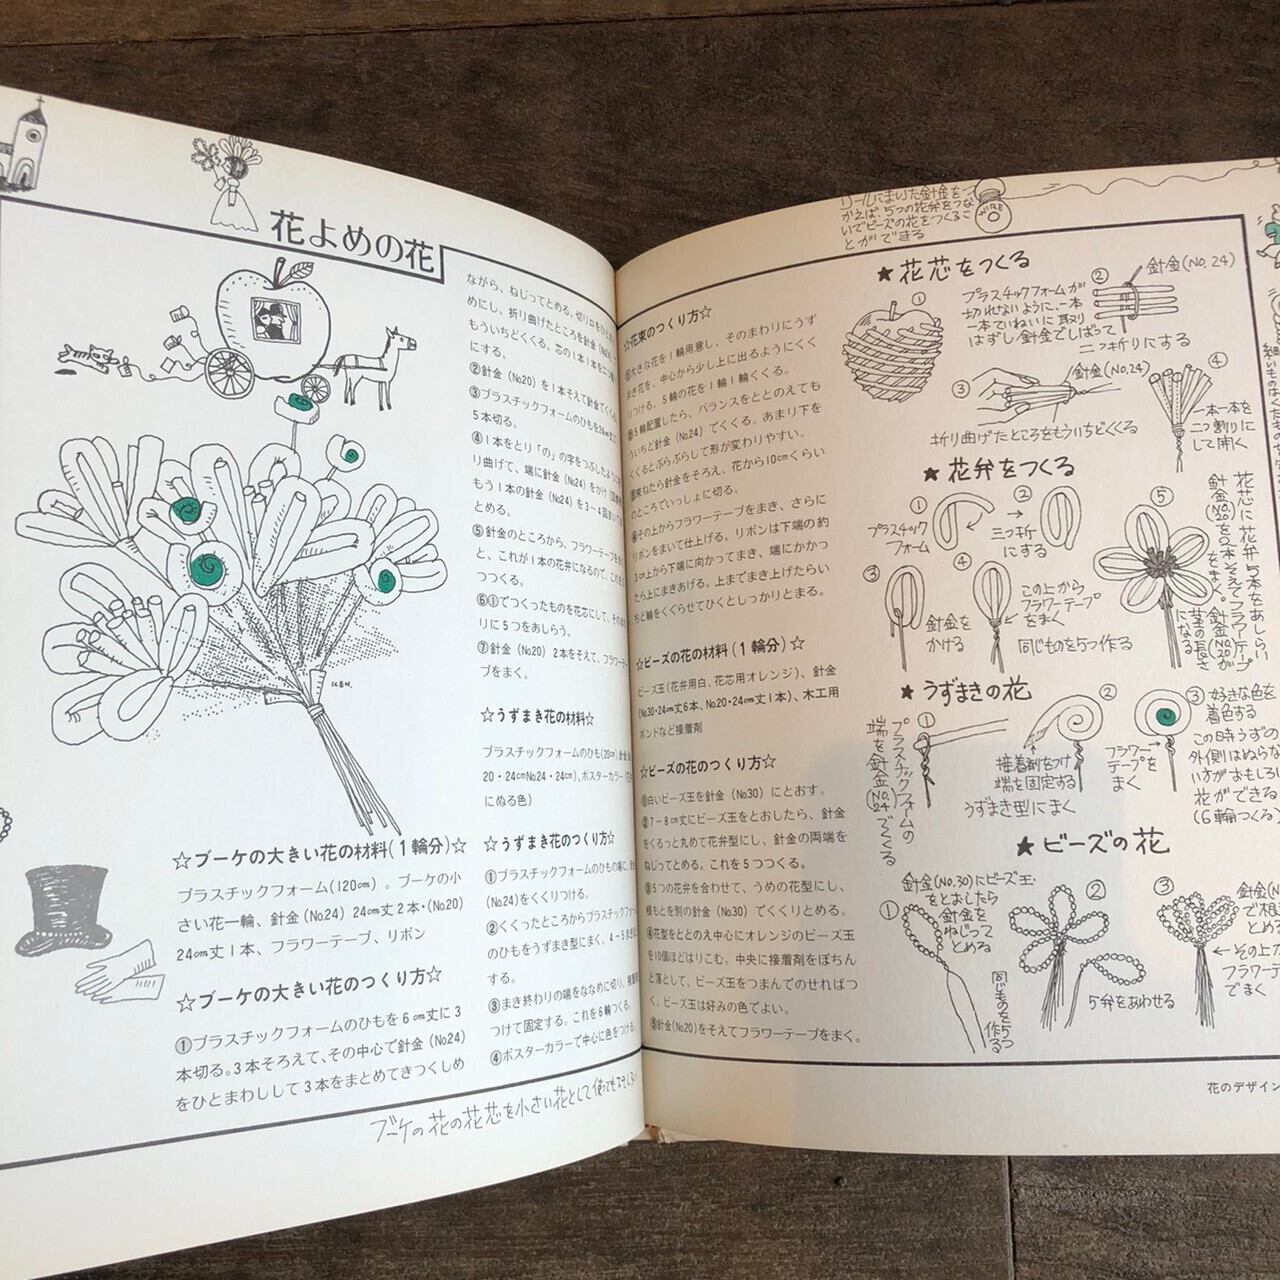 花よめの花
ながら、ねじってとめる。切り口をひと
めにし、折り曲げたところを針金
もういちどくくる。芯の1本1本を二つ
にする。
②針金(No.20)を1本そえて針金でくくる。
③プラスチックフォームのひもを26cm丈に
5本切る。
④1本をとり「の」の字をつぶしたように
り曲げて、端に針金(No.24)をかけ
もう1本の針金(No.24)を3〜4回
とめる。
⑤針金のところから、フラワーテープを
と、これが1本の花弁になるので、これを
つつくる。
⑥①でつくったものを花芯にして、その
りに5つをあしらう。
⑦針金(No.20)2本をそえて、フラワー
プをまく。
☆うずまき花の材料☆
プラスチックフォームのひも(20cm)、針金
20・24cmNo.24・24cm)、ポスターカラー
にぬる色)
☆うずまき花のつくり方☆
①プラスチックフォームのひもの端に、
(No.24)をくくりつける。
②くくったところからプラスチックフォーム
のひもをうずまき型にまく。4〜5
する。
③まき終わりの端をななめに切り、接着
つけて固定する。これを6輪つくる。
④ポスターカラーで中心に色をつける。
IKEN.
☆ブーケの大きい花の材料(1輪分)☆
プラスチックフォーム(120cm)。ブーケの小
さい花一輪、針金(No.24)24cm丈2本・(No.20)
24cm丈1本、フラワーテープ、リボン
☆ブーケの大きい花のつくり方☆
①プラスチックフォームのひもを6cm丈に3
本切る。3本そろえて、その中心で針金(No.24)
をひとまわしして3本をまとめてきつくしめ
ブーケの花の花芯を小さい花として使ってもステキよ
リールにまいた針金をつ
かえば、5つの花弁をつな
いでビーズの花をつくるこ
とができる
WIRE
☆花束のつくり方☆
①大きな花を1輪用意し、そのまわりにうず
まき花を、中心から少し上に出るようにくく
りつける。5輪の花を1輪1輪くくる。
②5輪配置したら、バランスをととのえても
ういちど針金(No.24)でくくる。あまり下を
くくるとぶらぶらして形が変わりやすい。
③束ねたら針金をそろえ、花から10cmくらい
のところでいっしょに切る。
④その上からフラワーテープをまき、さらに
リボンをまいて仕上げる。リボンは下端の約
3cm上から下端に向かってまき、端にかかっ
たら上にまきあげる。上までまき上げたらいい
ちど輪をくぐらせてひくとしっかりとまる。
☆ビーズの花の材料(1輪分)☆
ビーズ玉(花弁用白、花芯用オレンジ)、針金
(No.30・24cm丈6本、No.20・24cm丈1本)、木工用
ボンドなど接着剤
☆ビーズの花のつくり方☆
①白いビーズ玉を針金(No.30)にとおす。
②7〜8cm丈にビーズ玉をとおしたら、針金
をくるっと丸めて花弁型にし、針金の両端を
ねじってとめる。これを5つつくる。
③5つの花弁を合わせて、うめの花型にし、
根もとを別の針金(No.30)でくくりとめる。
④花型をととのえ中心にオレンジのビーズ玉
を10個ほどはりこむ。中央に接着剤をぽちん
と落として、ビーズ玉をつまんでのせればつ
く。ビーズ玉は好みの色でよい。
⑤針金(No.20)をそえてフラワーテープをまく。
★花芯をつくる
①
プラスチックフォームが
切れないように、一本
一本ていねいに取り
はずし針金でしばって
二つ折りにする
②
針金(NO.24)
③
針金(NO.24)
折り曲げたところをもういちどくくる
④
一本一本を
二つ割りに
して開く
★花弁をつくる
①
プラスチック
フォーム
②
三つ折
にする
③
針金を
かける
④
この上から
フラワーテープ
をまく
同じものを5つ作る
⑤
花芯に花弁5本をあしらい
針金(NO.20)を2本そえてフラワーテープ
をまく。
針金(NO.20)が
茎の長さ
になる
★うずまきの花
①
プラスチックフォームの
端を針金(NO.24)でくくる
②
接着剤をつけ
端を固定する
うずまき型にまく
フラワー
テープを
まく
③好きな色を
着色する
この時うずの
外側はぬらな
い方がおもしろい
花ができる
(6輪つくる)
★ビーズの花
針金(NO.30)にビーズ玉
をとおしたら
針金を
ねじって
とめる
①
同じものを5つ
作る
②
5弁をあわせる
③
針金
で根
とめる
←その上から
フラワーテープ
でまく
花のデザイン